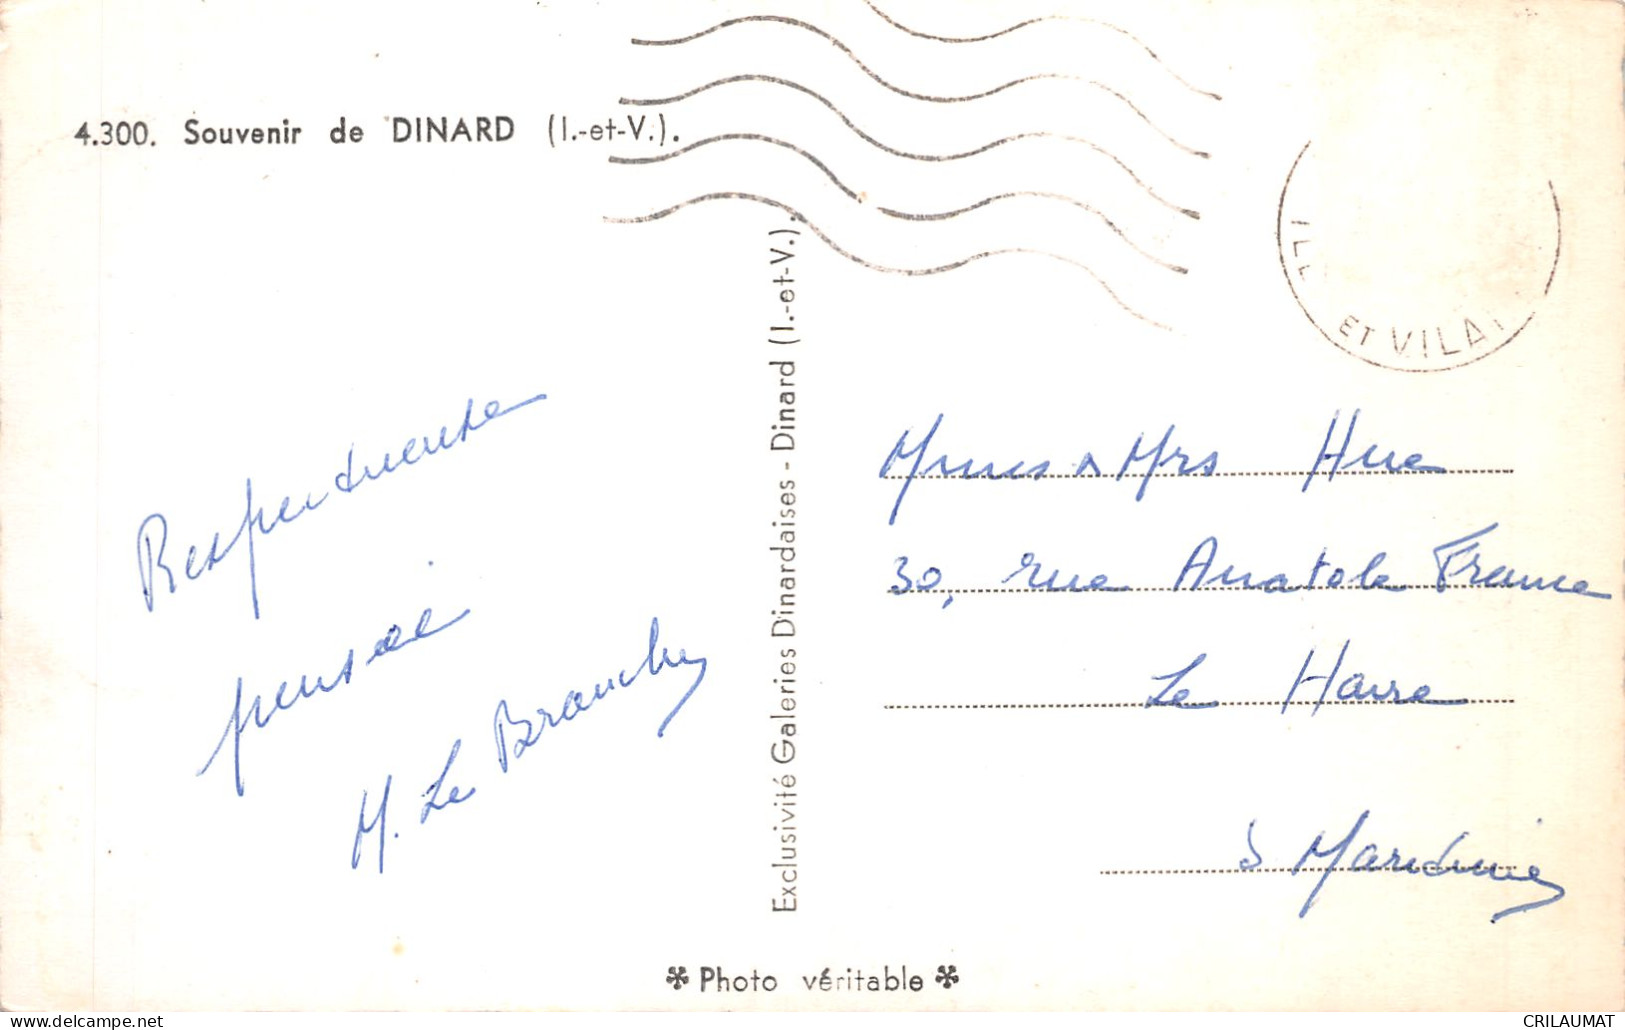 4.300. Souvenir de DINARD (I.-et-V.).
ET VILAI
Respectueuse
pensée
M. Le Branchu
Exclusivité Galeries Dinardaises - Dinard (I.-et-V.).
Mrs Hue
30, rue Anatole France
Le Havre
S Maritime
Photo véritable
delcampe.net
CRILAUMAT